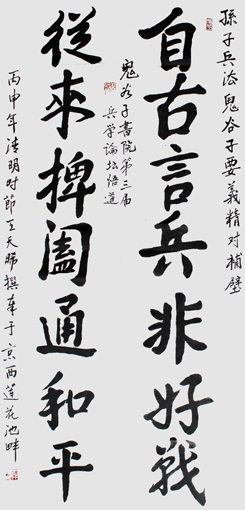 孫子兵法鬼谷子要義精对補壁
自古言兵非好戰
鬼谷子書院第三届
兵学論坛悟道
從來捭阖通和平
丙申年清明时節王天晞撰奉于京西莲花池畔